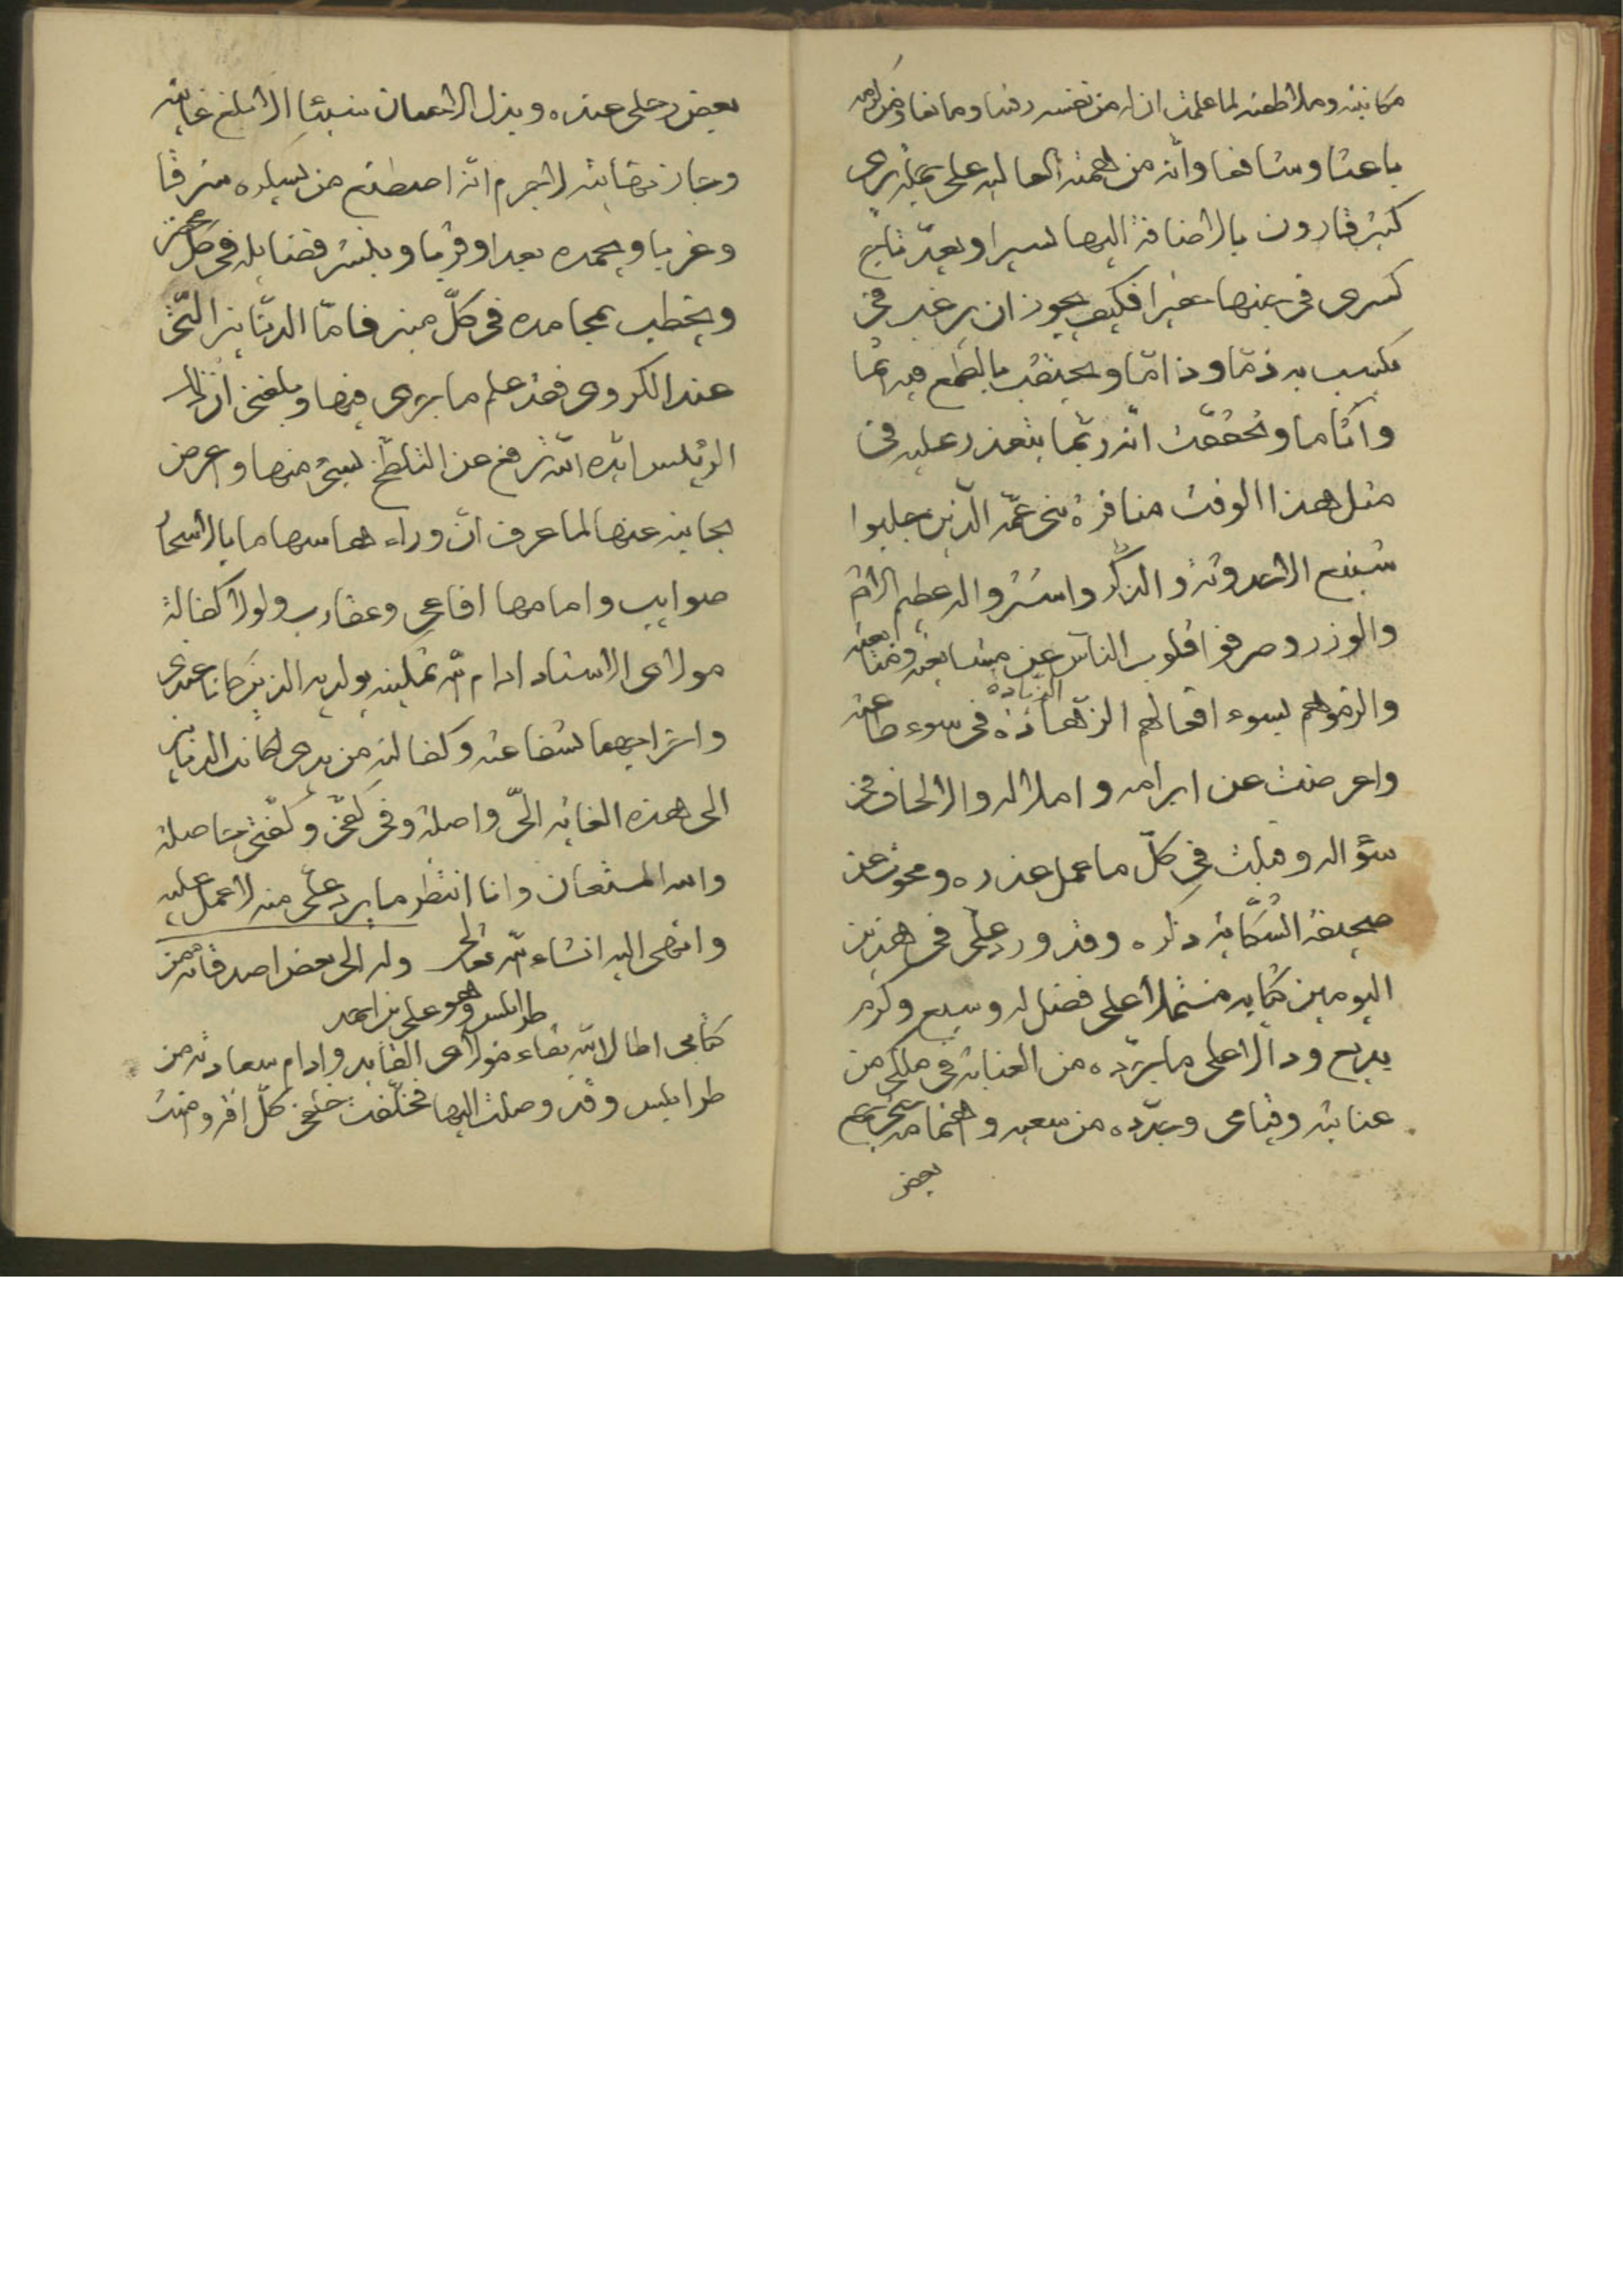 مكاتبته وملاطفته لما علمت ان له من نفسه دفينا ومانعا ومن كرمه
باعثا وشافعا وانّه من همّته العالية على جبلة يرى
كنز قارون بالاضافة اليها يسيرا ويعدّ تاج
كسرى في جنبها حقيرا فكيف يجوز ان يرغب في
مكسب به ذمّا وذامّا ويحتقب بالطمع فيه اثما
وآثاما وتحققت انّه ربّما يتعذر عليه في
مثل هذا الوقت منافرة بني عمّه الّذين جلبوا
شنيع الاحدوثة والذكر واستثروا له عظيم الاثم
والوزر وصرفوا قلوب الناس عن مشايعته ومتابعته
والزموهم بسوء افعالهم الزهادة في سوء طاعته
الزيادة
واعرضت عن ابرامه واملاله والالحاف في
سؤاله وقبلت في كلّ ما عمل عذره ومحوت عن
صحيفة الشكاية ذكره وقد ورد علىّ في هذين
اليومين كتابه مشتملا على فضل له وسيع وكرم
بديع ودالّا على ما يردّه من العناية في ملكي من
عناية وقيامى ويردّه من سعيه واهتمامه حتى يرجع
بعض
بعض رحلى عنده وبذل الاحسان شيئا الا بلغ غايته
وجاز نهايته لا جرم انّه اصطنع من يسيّره شرقا
وغربا ويحمده بعدا وقربا وينشر فضايله في كلّ محضر
ويخطب بمحامده في كلّ منبر فامّا الدنانير الّتي
عند الكروى فقد علم ما يرى فيها وبلغنى ان ذلك
الرئيس ايّده اللّه ترفع عن التلطّخ بشئ منها واعرض
بجانبه عنها لما عرف انّ وراءها سهاما بالاسحار
صوايب وامامها افاعى وعقارب ولولا كفالة
مولاى الاستاد ادام اللّه تمكينه بولديه الذين كانا عندى
واخراجهما بشفاعته وكفالته من يدى لكانت الدنانير
الى هذه الغاية الىّ واصلة وفى كفّى وكفّتى حاصلة
والله المستعان وانا انتظر ما يرد علىّ منه لاعمل عليه
وانتهى اليه انشاء اللّه تعالى وله الى بعض اصدقائه من
طرابلس وهو على بن احمد
كتابى اطال اللّه بقاء مولاى القايد وادام سعادته من
طرابلس وقد وصلت اليها فخلّفت خلفى كلّ افة ومنيت